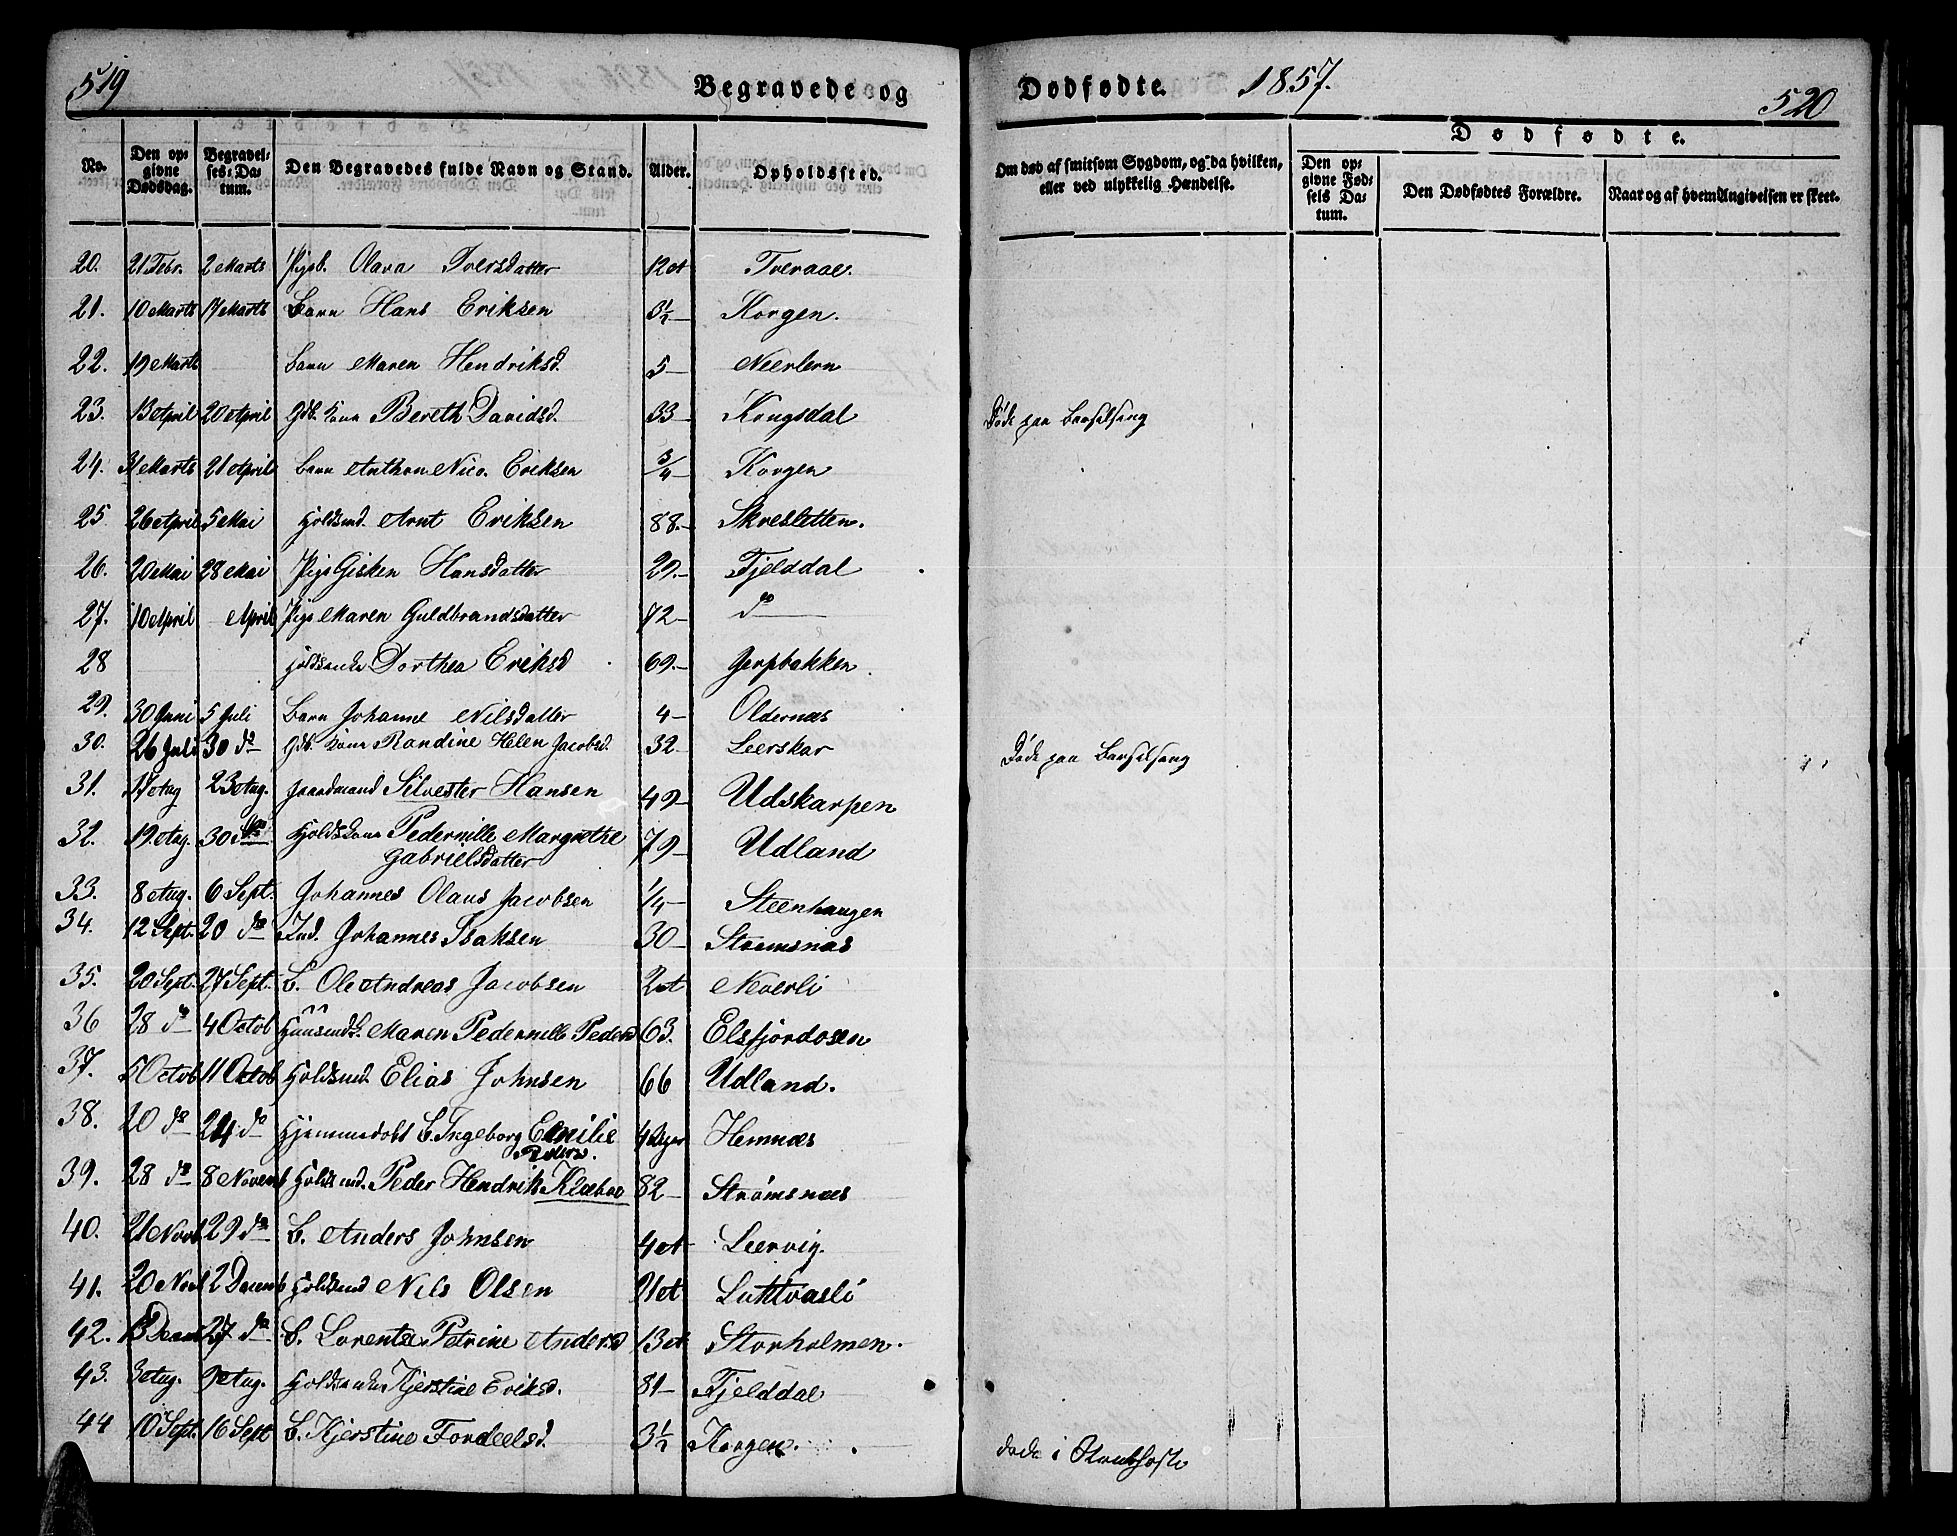 519
Begravede og
Dødfødte. 1857.
520
No. | Den opgivne Dødsdag. | Begravelses-Datum. | Den Begravedes fulde Navn og Stand. | Alder. | Opholdssted. | Om død af smitsom Sygdom, og da hvilken, eller ved ulykkelig Hændelse. | Dødfødte. | Den opgivne Fødsels Datum. | Den Dødfødtes Forældre. | Naar og af hvem Angivelsen er skeet.
20. 21 Febr. 2 Marts Olava Iversdatter 12 Tveraae.
21. 10 Marts 17 Marts Barn Hans Eriksen 3½ Korgen.
22. 19 Marts Barn Maren Hendriksd. 5 Neerleren
23. 13 April 20 April Gdb. Kone Bereth Davidsd. 33 Kongsdal Døde paa Barselseng
24. 31 Marts 21 April Barn Anthon Nico. Eriksen 3/4 Korgen
25 26 April 5 Mai Holdsmd. Arnt Eriksen 88. Skresletten.
26. 20 Mai 28 Mai Pige Gisken Hansdatter 29. Fjelddal
27. 10 April April Pige Maren Guldbrandsdatter 72 do
28 Holdsenke Dorthea Eriksd 69. Jerpbakken.
29. 30 Juni 5 Juli Barn Johanne Nilsdatter 4 Oldernæs
30. 26 Juli 30 do Gdb. Kone Randine Helen Jacobsd. 32 Leerskar Døde paa Barselseng
31. 17 Aug 23 Aug. Gaardmand Silvester Hansen 49 Udskarpen
32. 19. Aug. 30 do Holdskone Pedernille Margrethe
Gabrielsdatter 79 Udland
33. 8 Aug. 6 Sept. Johannes Olaus Jacobsen 1/4 Steenhaugen
34. 12 Sept. 20 do Ind. Johannes Isaksen 30 Strømsnæs
35. 20 Sept. 27 Sept. B. Ole Andreas Jacobsen 2 Neverli
36 28 do 4 Octob Huusmdk. Maren Pedernille Pedersd 63. Elsfjordosen
37. 5 Octob 11 Octob Holdsmd. Elias Johnsen 66 Udland.
38. 20 do 24 do Hjemmedøbt B. Ingeborg Emilie
4 Dager Hemnæs
39. 28 do 8 Novemb Holdsmd. Peder Hendrik Klæboe 82 Strømsnæs
40. 21 Novb 29 do B. Anders Johnsen 4 Leervig.
41. 20 Novb 2 Decemb Holdsmd Nils Olsen 21 Luktvasli
42. 13 Decem 27 do B. Lorentse Petrine Andersd 13 Storholmen.
43. 3 Aug. 9 Aug. Holdsenke Kjerstine Eriksd. 81 Fjelddal
44 10 Sept. 16 Sept B. Kjerstine Fordeelsd. 3½ Korgen. døde i